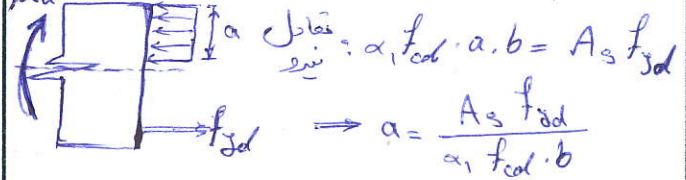 Mu
a
تعادل نیرو : α₁ fcd . a . b = As fyd
fyd ⟹ a = As fyd / α₁ fcd . b